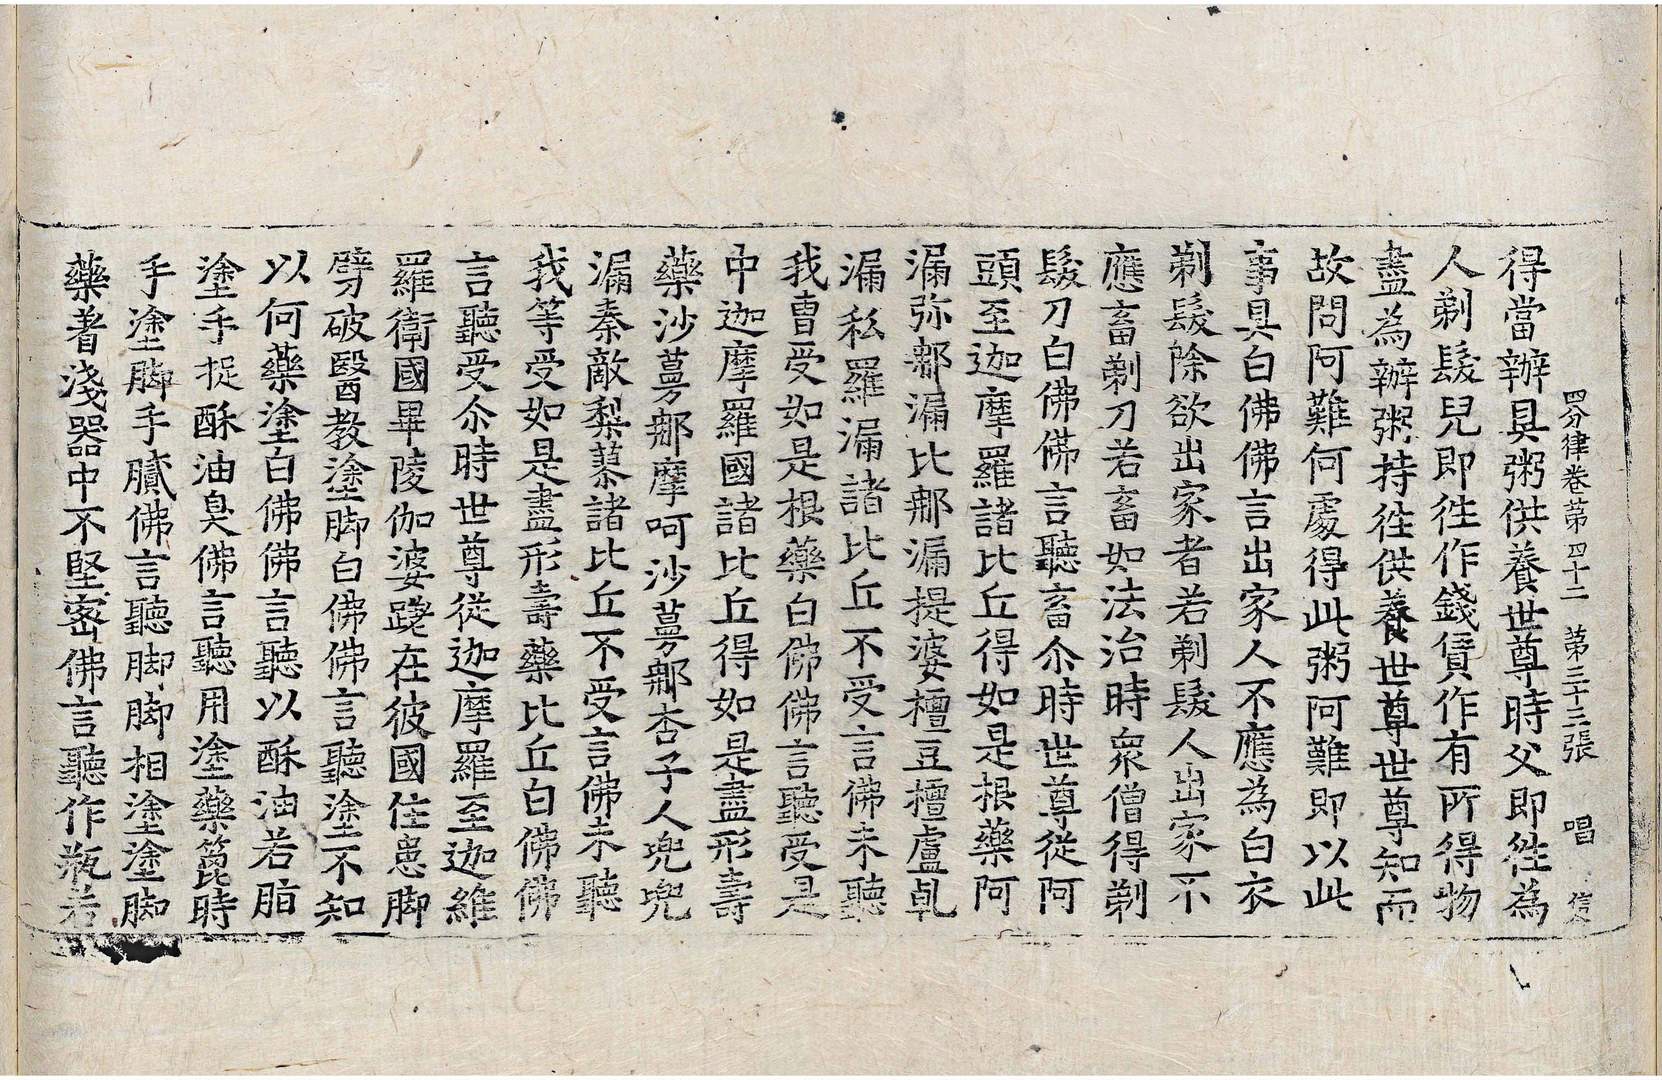 四分律卷第四十二 第三十三張 唱
得當辦具粥供養世尊時父即徃為
人剃髮兒即徃作錢賃作有所得物
盡為辦粥持徃供養世尊世尊知而
故問阿難何處得此粥阿難即以此
事具白佛佛言出家人不應為白衣
剃髮除欲出家者若剃髮人出家不
應畜剃刀若畜如法治時衆僧得剃
髮刀白佛佛言聽畜尒時世尊從阿
頭至迦摩羅諸比丘得如是根藥阿
漏弥那漏比那漏提婆檀豆檀盧乹
漏私羅漏諸比丘不受言佛未聽
我曹受如是根藥白佛佛言聽受是
中迦摩羅國諸比丘得如是盡形壽
藥沙蔓那摩呵沙蔓那杏子人兜兜
漏秦敵梨藜諸比丘不受言佛未聽
我等受如是盡形壽藥比丘白佛佛
言聽受尒時世尊從迦摩羅至迦維
羅衛國畢陵伽婆蹉在彼國住患脚
劈破醫教塗脚白佛佛言聽塗不知
以何藥塗白佛佛言聽以酥油若脂
塗手捉酥油臭佛言聽用塗藥箆時
手塗脚手膩佛言聽脚脚相塗塗脚
藥著淺器中不堅密佛言聽作瓶若